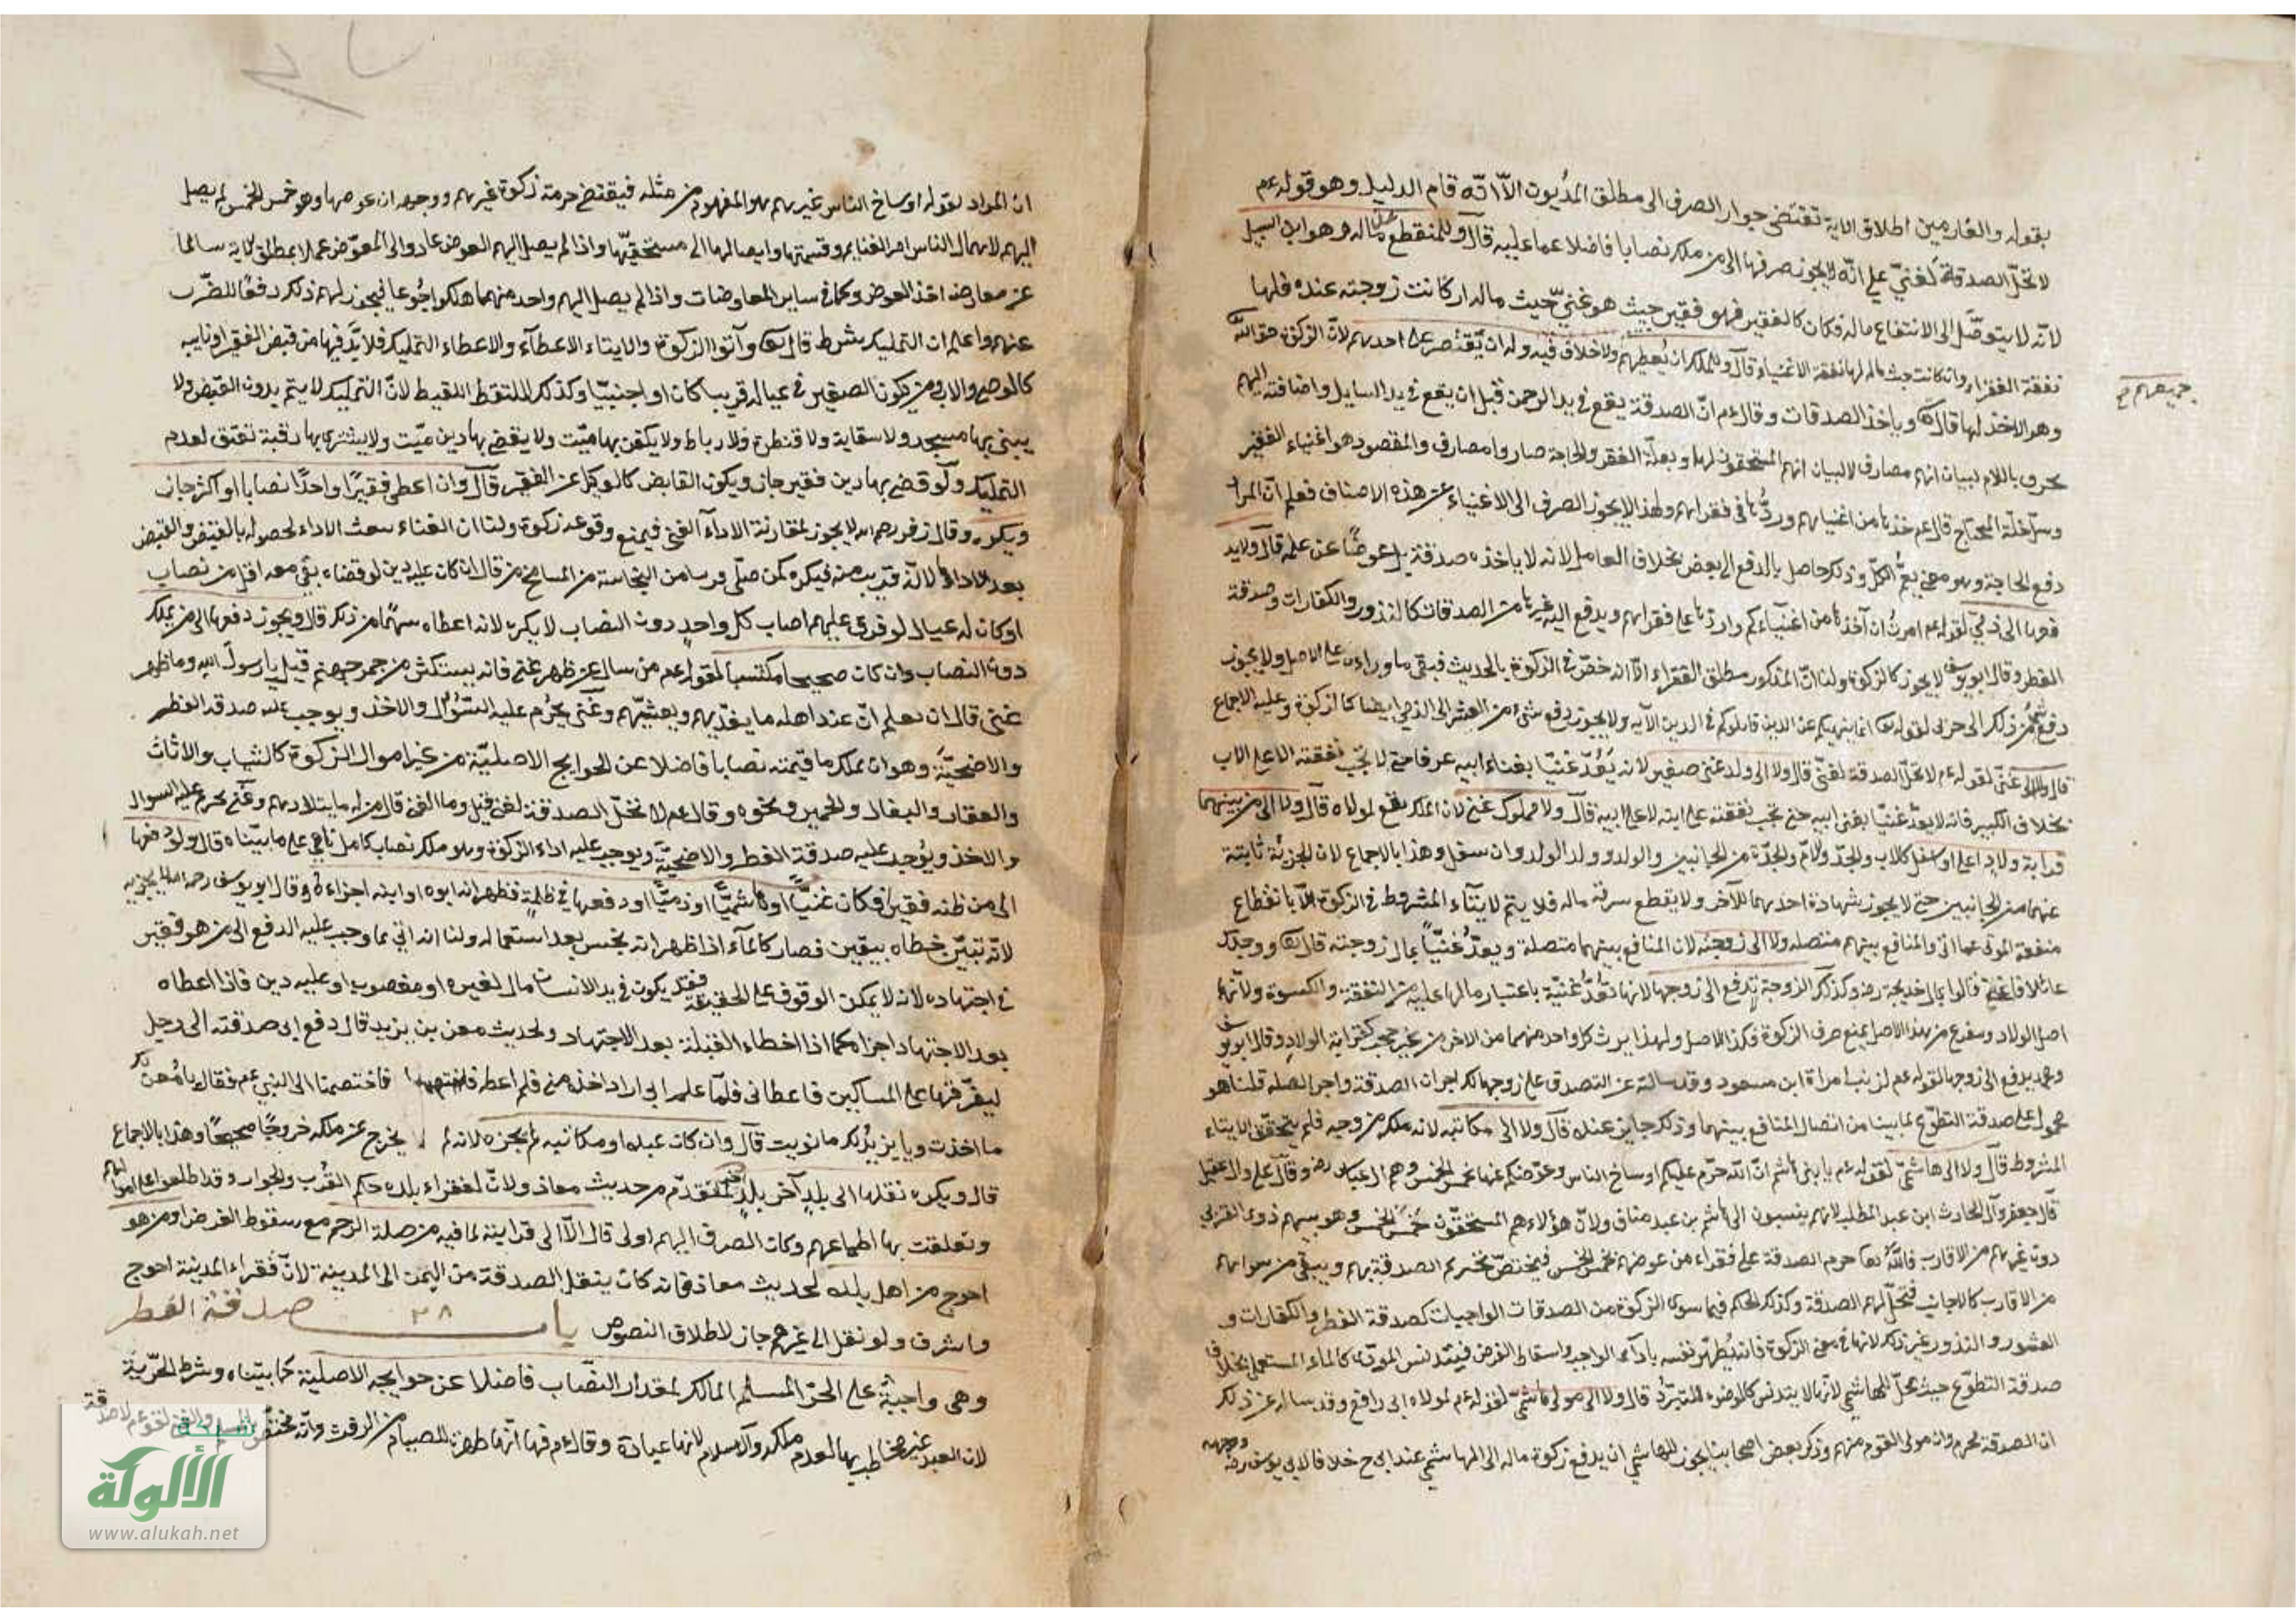 بقوله والغارمين اطلاق الاية تقتضى جواز الصرف الى مطلق المديون الا انه قام الدليل وهو قوله عم
لا تحل الصدقة لغنى على انه لا يجوز صرفها الى من ملك نصابا فاضلا عما عليه قال وللمنقطع عن ماله وهو ابن السبيل
لانه لا يتوصل الى الانتفاع بماله فكان كالفقير فهو فقير حيث هو غنى حيث ماله ان كانت زوجته عنده فلها
نفقة الفقراء وان كانت حيث ماله لها نفقة الاغنياء قال وللمالك ان يعطيهم ولا خلاف فيه وله ان يقتصر على احدهم لان الزكوة حق الله
وهو الاخذ لها قال الله تعا وياخذ الصدقات وقال عم ان الصدقة يقع فى يد الرحمن قبل ان يقع فى يد السايل واضافته اليهم
جميعهم صح
بحرف باللام لبيان انهم مصارف لا لبيان انهم المستحقون لها وبعلة الفقر والحاجة صاروا مصارف والمقصود هو اغنياء الفقير
وسد خلة المحتاج قال عم خذها من اغنيائهم وردها فى فقرائهم ولهذا لا يجوز الصرف الى الاغنياء من هذه الاصناف فعلم ان المراد
دفع الحاجة وهو معنى يعم الكل وذلك حاصل بالدفع الى البعض بخلاف العامل لانه لا ياخذه صدقة بل عوضا عن عمله قال ولا يد
فعها الى ذمى لقوله عم امرت ان آخذها من اغنيائكم واردها على فقرائهم ويدفع اليه غيرها من الصدقات كالنذور والكفارات وصدقة
الفطر وقال ابو يوسف لا يجوز كالزكوة ولنا ان المذكور مطلق الفقراء الا انه خص فى الزكوة بالحديث فبقى ما وراءه على الاصل ولا يجوز
دفع شئ من ذلك الى حربى لقوله تعا انما ينهيكم عن الدين قاتلوكم فى الدين الآيه ولا يجوز دفع شئ من العشر الى الذمى ايضا كالزكوة وعليه الاجماع
قال ولا الى غنى لقوله عم لا تحل الصدقة لغنى قال ولا الى ولد غنى صغير لانه يعد غنيا بغناء ابيه عرفا حتى لا تجب نفقته الا على الاب
بخلاف الكبير فانه لا يعد غنيا بغنى ابيه حتى تجب نفقته على ابنه لا على ابيه قال ولا مملوك غنى لان الملك يقع لمولاه قال ولا الى من بينهما
قرابة ولاد اعلى او اسفل كالاب والجد والام والجدة من الجانبين والولد وولد الولد وان سفل وهذا بالاجماع لان الجزئية ثابتة
عنهما من الجانبين حتى لا يجوز شهادة احدهما للآخر ولا يقطع سرقة ماله فلا يتم الايتاء المشروط فى الزكوة الا بانقطاع
منفعة المؤتى عما اتى والمنافع بينهم متصله ولا الى زوجته لان المنافع بينهما متصلة ويعد غنيا بمال زوجته قال تعا ووجدك
عائلا فاغنى قالوا بمال خديجة رضه وكذلك الزوجة تدفع الى زوجها لانها تعد غنية باعتبار مالها عليه من النفقة والكسوة ولانهما
اصل الولاد ومتفرع من هذا الاصل يمنع صرف الزكوة فكذا الاصل ولهذا يرث كل واحد منهما من الاخر من غير حجب كقرابة الولاد وقال ابو يوسف
ومحمد يدفع الى زوجها لقوله عم لزينب امراة ابن مسعود وقد سالته عن التصدق على زوجها لك اجران الصدقة واجر الصله قلنا هو
محمول على صدقة التطوع لما بينا من اتصال المنافع بينهما وذلك جايز عنده قال ولا الى مكاتبه لانه ملكه من وجه فلم يتحقق الايتاء
المشروط قال ولا الى هاشمى لقوله عم يا بنى هاشم ان الله حرم عليكم اوساخ الناس وعوضكم عنها بخمس الخمس وهم آل عباس رضه وآل على وال عقيل
آل جعفر وآل الحارث ابن عبد المطلب لانهم ينسبون الى هاشم بن عبد مناف ولان هؤلاء هم المستحقون خمس الخمس وهو سهم ذوى القربى
دون غيرهم من الاقارب فالله تعا حرم الصدقة على فقراء من عوضهم بخمس الخمس فيختص تحريم الصدقة بهم ويبقى من سواهم
من الاقارب كالاجانب فتحل لهم الصدقة وكذلك الحكم فيما سوى الزكوة من الصدقات الواجبات كصدقة الفطر والكفارات و
العشور والنذور غير ذلك لانها فى معنى الزكوة فانه يطهر نفسه باداء الواجب واسقاط الفرض فيتدنس المؤدى كالماء المستعمل بخلاف
صدقة التطوع حيث تحل للهاشمى لانها لا يتدنس كالوضوء للتبرد قال ولا الى مولى هاشمى لقوله عم لمولاه ابى رافع وقد ساله عن ذلك
ان الصدقة محرم وان مولى القوم منهم وذكر بعض اصحابنا يجوز للهاشمى ان يدفع زكوة ماله الى الهاشمى عند ابى ح خلافا لابى يوسف رضه وجهه
ان المراد بقوله اوساخ الناس غيرهم هو المفهوم من مثله فيقتضى حرمة زكوة غيرهم ووجهه ان عوضها وهو خمس الخمس لم يصل
اليهم لاهمال الناس امر الغنايم وقسمتها وايصالها الى مستحقيها واذا لم يصل اليهم العوض عادوا الى المعوض عملا بمطلق الاية سالما
عن معارضه اخذ العوض وكما فى ساير المعاوضات واذا لم يصل اليهم واحد منهما هلكوا جوعا فيجوز لهم ذلك دفعا للضرر
عنهم واعلم ان التمليك بشرط قال تعا وآتوا الزكوة والايتاء الاعطآء والاعطاء التمليك فلا بد فيها من قبض الفقير او نايبه
كالوصى والاب ومن يكون الصغير فى عياله قريبا كان او اجنبيا وكذلك الملتقط اللقيط لان التمليك لا يتم بدون القبض ولا
يبنى بها مسجد ولا سقاية ولا قنطرة ولا رباط ولا يكفن بها ميت ولا يقضى بها دين ميت ولا يشترى بها رقبة تعتق لعدم
التمليك ولو قضى بها دين فقير جاز ويكون القابض كالوكيل عن الفقير قال وان اعطى فقيرا واحدا نصابا او اكثر جاز
ويكره وقال زفر رحمه الله لا يجوز لمقارنة الاداء الغنى فيمنع وقوعه زكوة ولنا ان الغناء الاداء لحصوله بالقبض والقبض
بعد الاداء الا انه قريب منه فيكره كمن صلى وبه من النجاسة من المسامح من قال ان كان عليه دين لو قضاه بقى معه اقل من نصاب
او كان له عيال لو فرق عليهم اصاب كل واحد دون النصاب لا يكره لانه اعطاه سهما من ذلك قال ويجوز دفعها الى من يملك
دون النصاب وان كان صحيحا مكتسبا لقوله عم من سال عن ظهر غنى فانه يستكثر من جمر جهنم قيل يا رسول الله وما ظهر
غنى قال ان يعلم ان عند اهله ما يغديهم ويعشيهم وغنى يحرم عليه السؤال والاخذ ويوجب عليه صدقة الفطر
والاضحية وهو ان يملك ما قيمته نصابا فاضلا عن الحوايج الاصلية من غير اموال الزكوة كالثياب والاثاث
والعقار والبغال والحمير ونحوه وقال عم لا تحل الصدقة لغنى قيل وما الغنى قال من له مايتا درهم وغنى يحرم عليه السوال
والاخذ ويوجب عليه صدقة الفطر والاضحية ويوجب عليه اداء الزكوة وهو ملك نصاب كامل نامى على ما بيناه قال ولو دفعها
الى من ظنه فقيرا فكان غنيا او هاشميا او ذميا او دفعها فى ظلمة فظهر انه ابوه او ابنه اجزاءه وقال ابو يوسف رحمه الله لا يجزيه
لانه تبين خطاه بيقين فصار كالمآء اذا ظهر انه نجس بعد استعماله ولنا انه اتى بما وجب عليه الدفع الى من هو فقير
فى اجتهاده لانه لا يمكن الوقوف على الحقيقة فقد يكون فى يد الانسان مال لغيره او مغصوب او عليه دين فاذا اعطاه
بعد الاجتهاد اجزاه كما اذا اخطاء القبلة بعد الاجتهاد ولحديث معن بن يزيد قال دفع ابى صدقته الى رجل
ليفرقها على المساكين فاعطانى فلما علم ابى اراد اخذه منى فلم اعطه فاختصمنا الى النبى عم فقال يا معن لك
ما اخذت ويا يزيد لك ما نويت قال وان كان عبده او مكاتبه لم يجزه لانه لم يخرج عن ملكه خروجا صحيحا وهذا بالاجماع
قال ويكره نقلها الى بلد آخر لمتقدم من حديث معاذ ولان لفقراء بلده حكم القرب والجوار وقد اطلعوا على اموالهم
وتعلقت بها اطماعهم وكان الصرف اليهم اولى قال الا الى قرابته لما فيه من صلة الرحم مع سقوط الفرض او من هو
احوج من اهل بلده لحديث معاذ فانه كان ينقل الصدقة من اليمن الى المدينة لان فقراء المدينة احوج
واشرف ولو نقل الى غيرهم جاز لاطلاق النصوص باب صدقة الفطر
٢٨
وهى واجبة على الحر المسلم المالك لمقدار النصاب فاضلا عن حوايجه الاصلية كما بيناه وشرط الحرية
لان العبد غير مخاطب بها لعدم ملكه والاسلام لانها عبادة وقال عم فيها انها طهرة للصيام من الرفث وانه مختص
شبكة
الألوكة
www.alukah.net